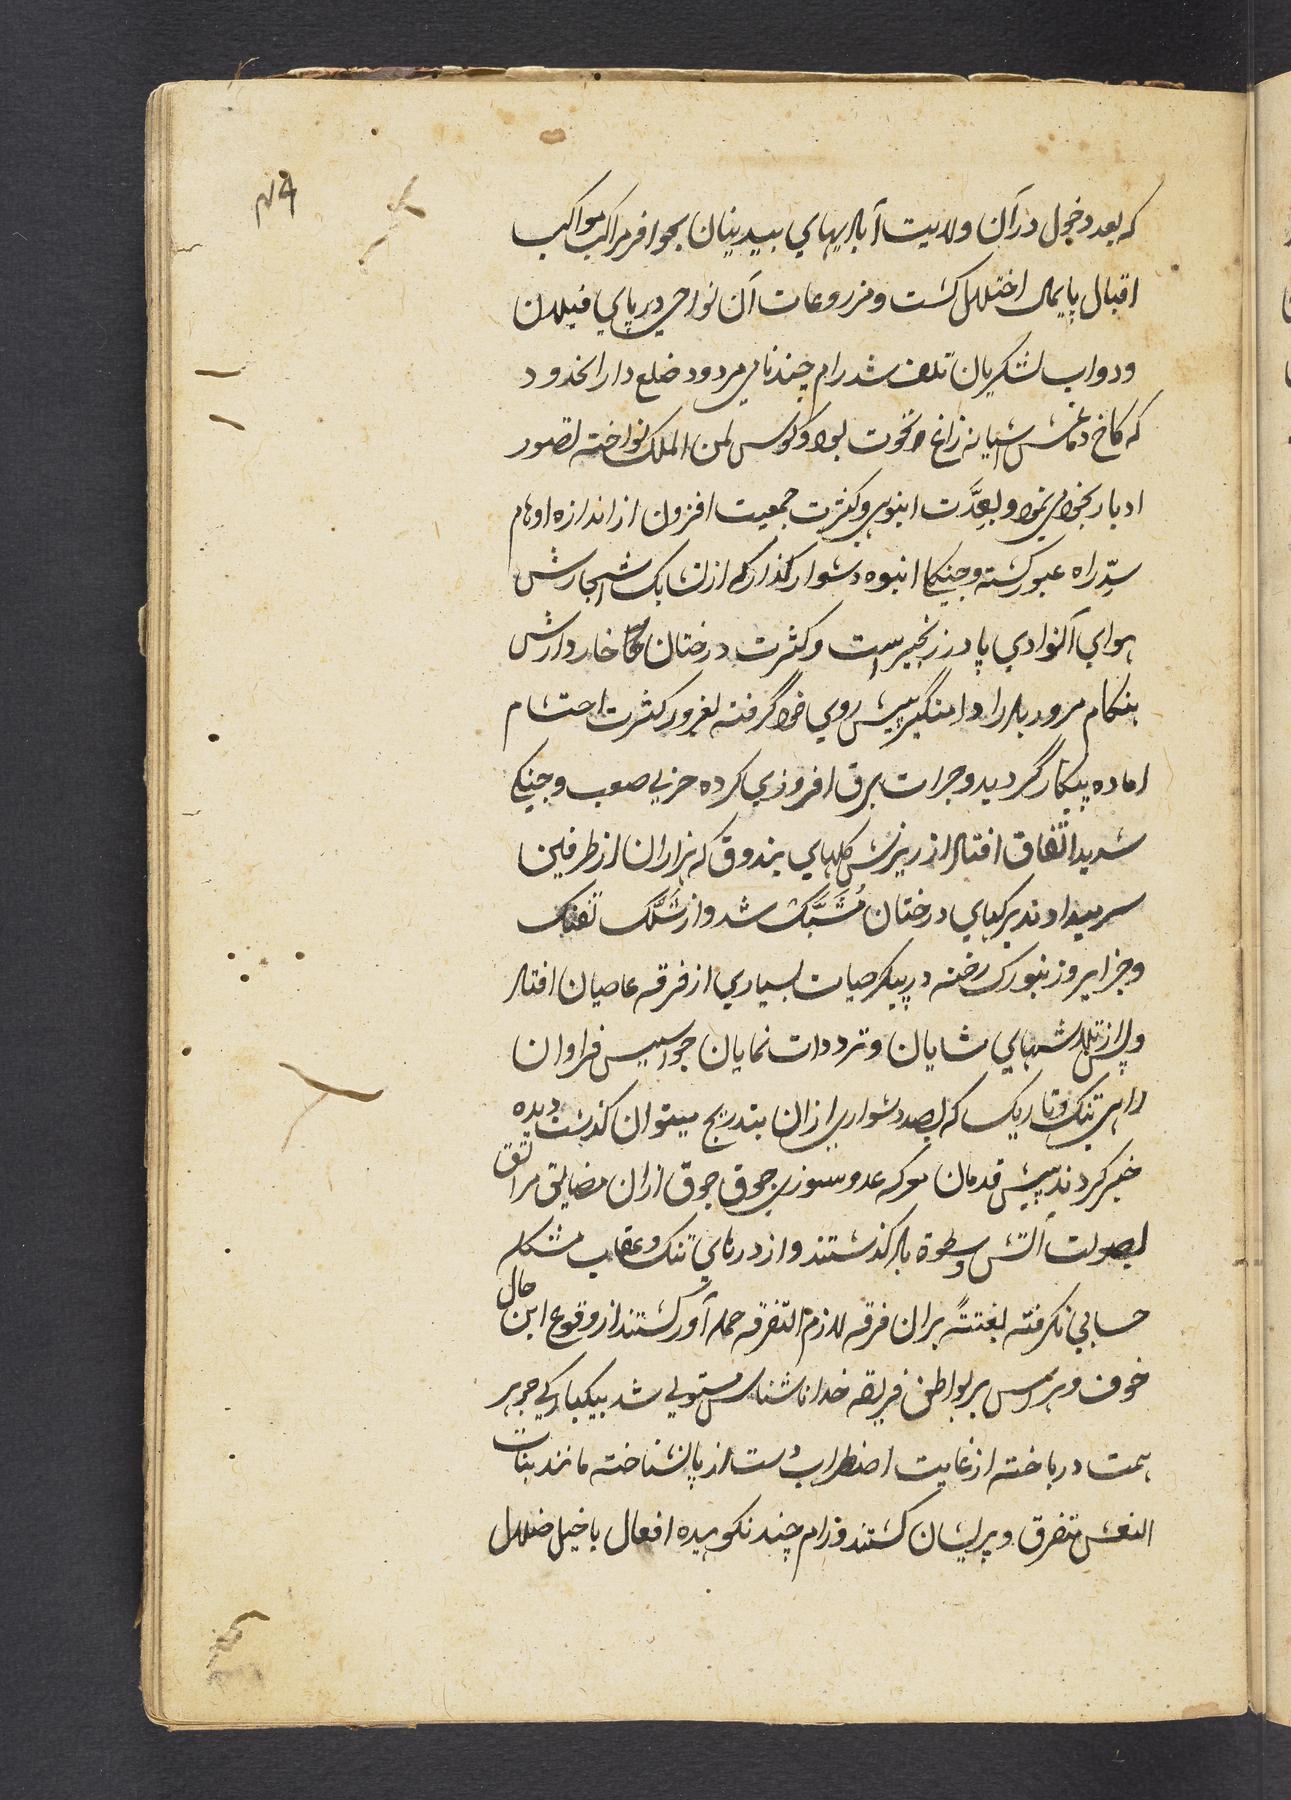 ۴۹
که بعد دخول در آن ولایت آبادیهای بیدینان بحوافر مراکب مواکب
اقبال پایمال اختلال کشت و مزروعات آن نواحی در پای فیلان
و دواب لشکریان تلف شد رام چند نامی مردود ضلع دارالخدود
که کاخ دماغش اشیانه زاغ نخوت بود و کوس لمن الملک نواخته تصور
ادبار بخوابی نمود و بعِدَّت انبوهی و کثرت جمعیت افزون از اندازه اوهام
سدِّ راه عبور کشته و جنیکا انبوه دشوار کذار که از تشابک اشجارش
هوای آنوادی پا در زنجیر است و کثرت درختان خاردارش
بنکام مرور باد را دامنگیر پیش روی خود گرفته بغرور کثرت احتشام
اماده پیکار گردید و جرات برق افروزی کرده حربی صعب و جنکی
شدید اتفاق افتاد از ریزش کلهای بندوق که هزاران از طرفین
سر میدادند برکهای درختان مُشَبَّک شد و از شَلَّک تفنک
و جزایر و زنبورک رخنه در پیکر حیات بسیاری از فرقه عاصیان افتاد
و پس از تلاشهای شایان و ترددات نمایان جواسیس فراوان
راهی تنک و تاریک که بصد دشواری ازان بتدریج میتوان کذشت دیده
خبر کردند پیش قدمان معرکه عدو سوزی جوق جوق ازان مضایق مزالق
بصولت آتش و سطوة باد کذشتند و از درهای تنک و عقاب مشکله
حسابی نکرفته بغتتةً بران فرقه لازم التفرقه حمله آور کشتند از وقوع این حال
خوف و هراس بر بواطن فریقه خدا ناشناس مستولی شد بیکبارکی جوهر
همت در باخته از غایت اضطراب دست از پا نشناخته مانند بنات
النعش متفرق و پریشان کشتند و رام چند نکوهیده افعال با خیل ضلال